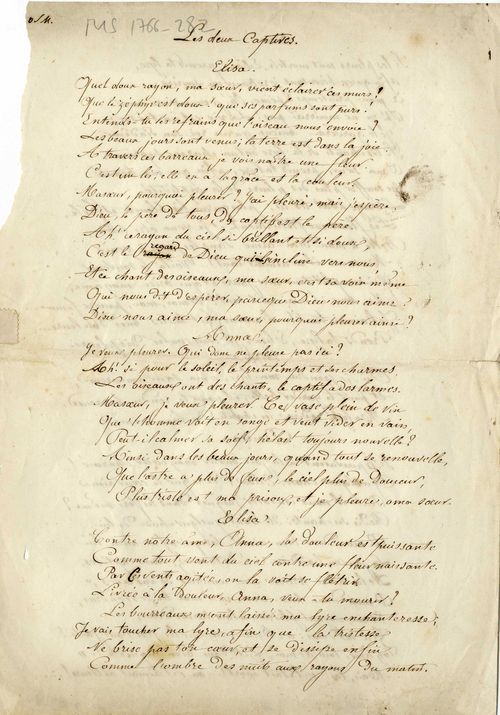 MS 1766-282
Les deux Captives.
Elisa.
Quel doux rayon, ma sœur, vient éclairer ces murs?
Que le zéphyr est doux! que ses parfums sont purs!
Entends-tu les refrains que l'oiseau nous envoie?
Les beaux jours sont venus; la terre est dans la joie.
A travers ces barreaux je vois naître une fleur.
C'est un lis; elle en a la grâce et la couleur.
Ma sœur, pourquoi pleurer? J'ai pleuré, mais j'espère.
Dieu, le père de tous, du captif est le père.
Ah! le rayon du ciel si brillant et si doux,
C'est le regard de Dieu qui s'incline vers nous,
Et ce chant des oiseaux, ma sœur, c'est sa voix même
Qui nous dit d'espérer, parce que Dieu nous aime.
Dieu nous aime, ma sœur, pourquoi pleurer ainsi?
Anna.
Je veux pleurer. Qui donc ne pleure pas ici?
Ah! si pour le soleil, le printemps et ses charmes
Les oiseaux ont des chants, le captif a des larmes.
Ma sœur, je veux pleurer. Ce vase plein de vin
Que l'homme voit en songe et veut vider en vain,
Peut-il calmer sa soif, hélas! toujours nouvelle?
Ainsi dans les beaux jours, quand tout se renouvelle,
Que l'astre a plus de feux, le ciel plus de douceur,
Plus triste est ma prison, et je pleure, o ma sœur.
Elisa
Contre notre âme, Anna, la douleur est puissante
Comme tout vent du ciel contre une fleur naissante.
Par ces vents agitée, on la voit se flétrir
Livrée à la Douleur, Anna, veux-tu mourir?
Les bourreaux m'ont laissé ma lyre enchanteresse;
Je vais toucher ma lyre, afin que la tristesse
Ne brise pas ton cœur, et se dissipe enfin
Comme l'ombre des nuits aux rayons du matin.